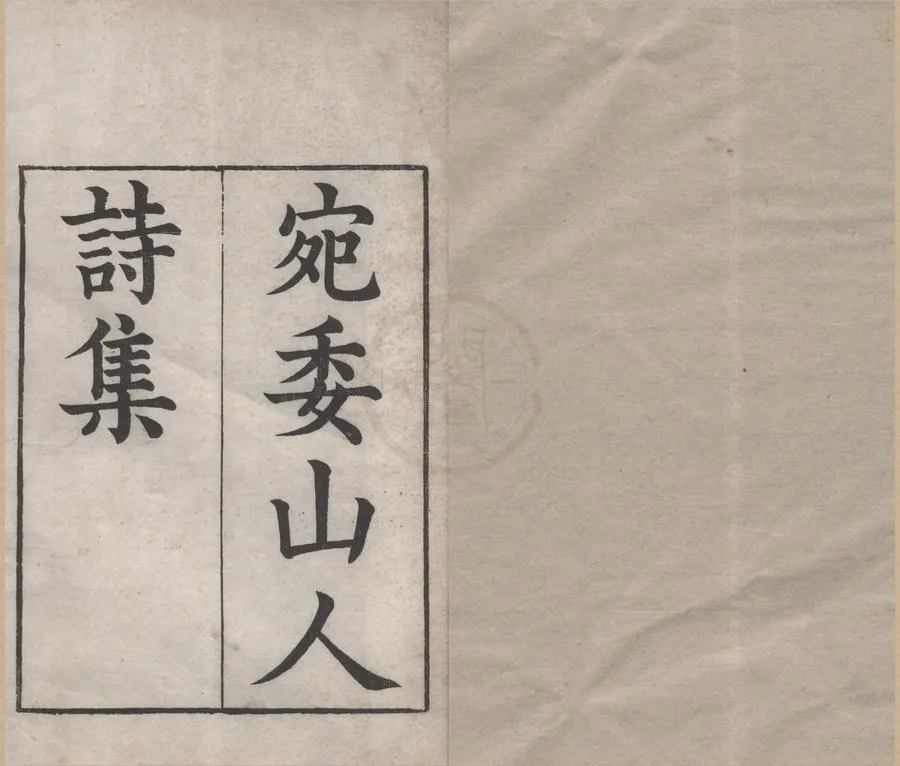 宛委山人
詩集